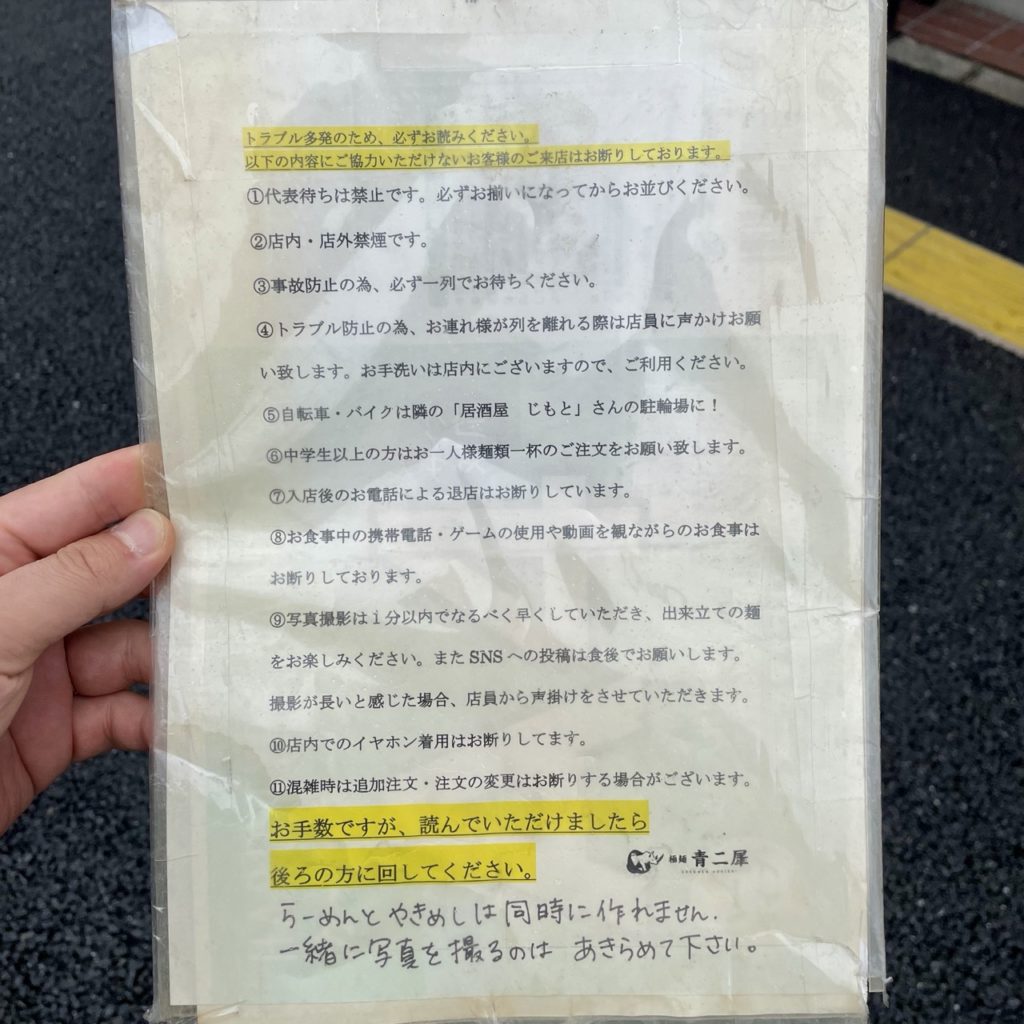 トラブル多発のため、必ずお読みください。
以下の内容にご協力いただけないお客様のご来店はお断りしております。
①代表待ちは禁止です。必ずお揃いになってからお並びください。
②店内・店外禁煙です。
③事故防止の為、必ず一列でお待ちください。
④トラブル防止の為、お連れ様が列を離れる際は店員に声かけお願
い致します。お手洗いは店内にございますので、ご利用ください。
⑤自転車・バイクは隣の「居酒屋　じもと」さんの駐輪場に！
⑥中学生以上の方はお一人様麺類一杯のご注文をお願い致します。
⑦入店後のお電話による退店はお断りしています。
⑧お食事中の携帯電話・ゲームの使用や動画を観ながらのお食事は
お断りしております。
⑨写真撮影は１分以内でなるべく早くしていただき、出来立ての麺
をお楽しみください。また SNS への投稿は食後でお願いします。
撮影が長いと感じた場合、店員から声掛けをさせていただきます。
⑩店内でのイヤホン着用はお断りしてます。
⑪混雑時は追加注文・注文の変更はお断りする場合がございます。
お手数ですが、読んでいただけましたら
後ろの方に回してください。
極麺 青二犀
らーめんと やきめしは同時に作れません.
一緒に写真を撮るのは あきらめて下さい。